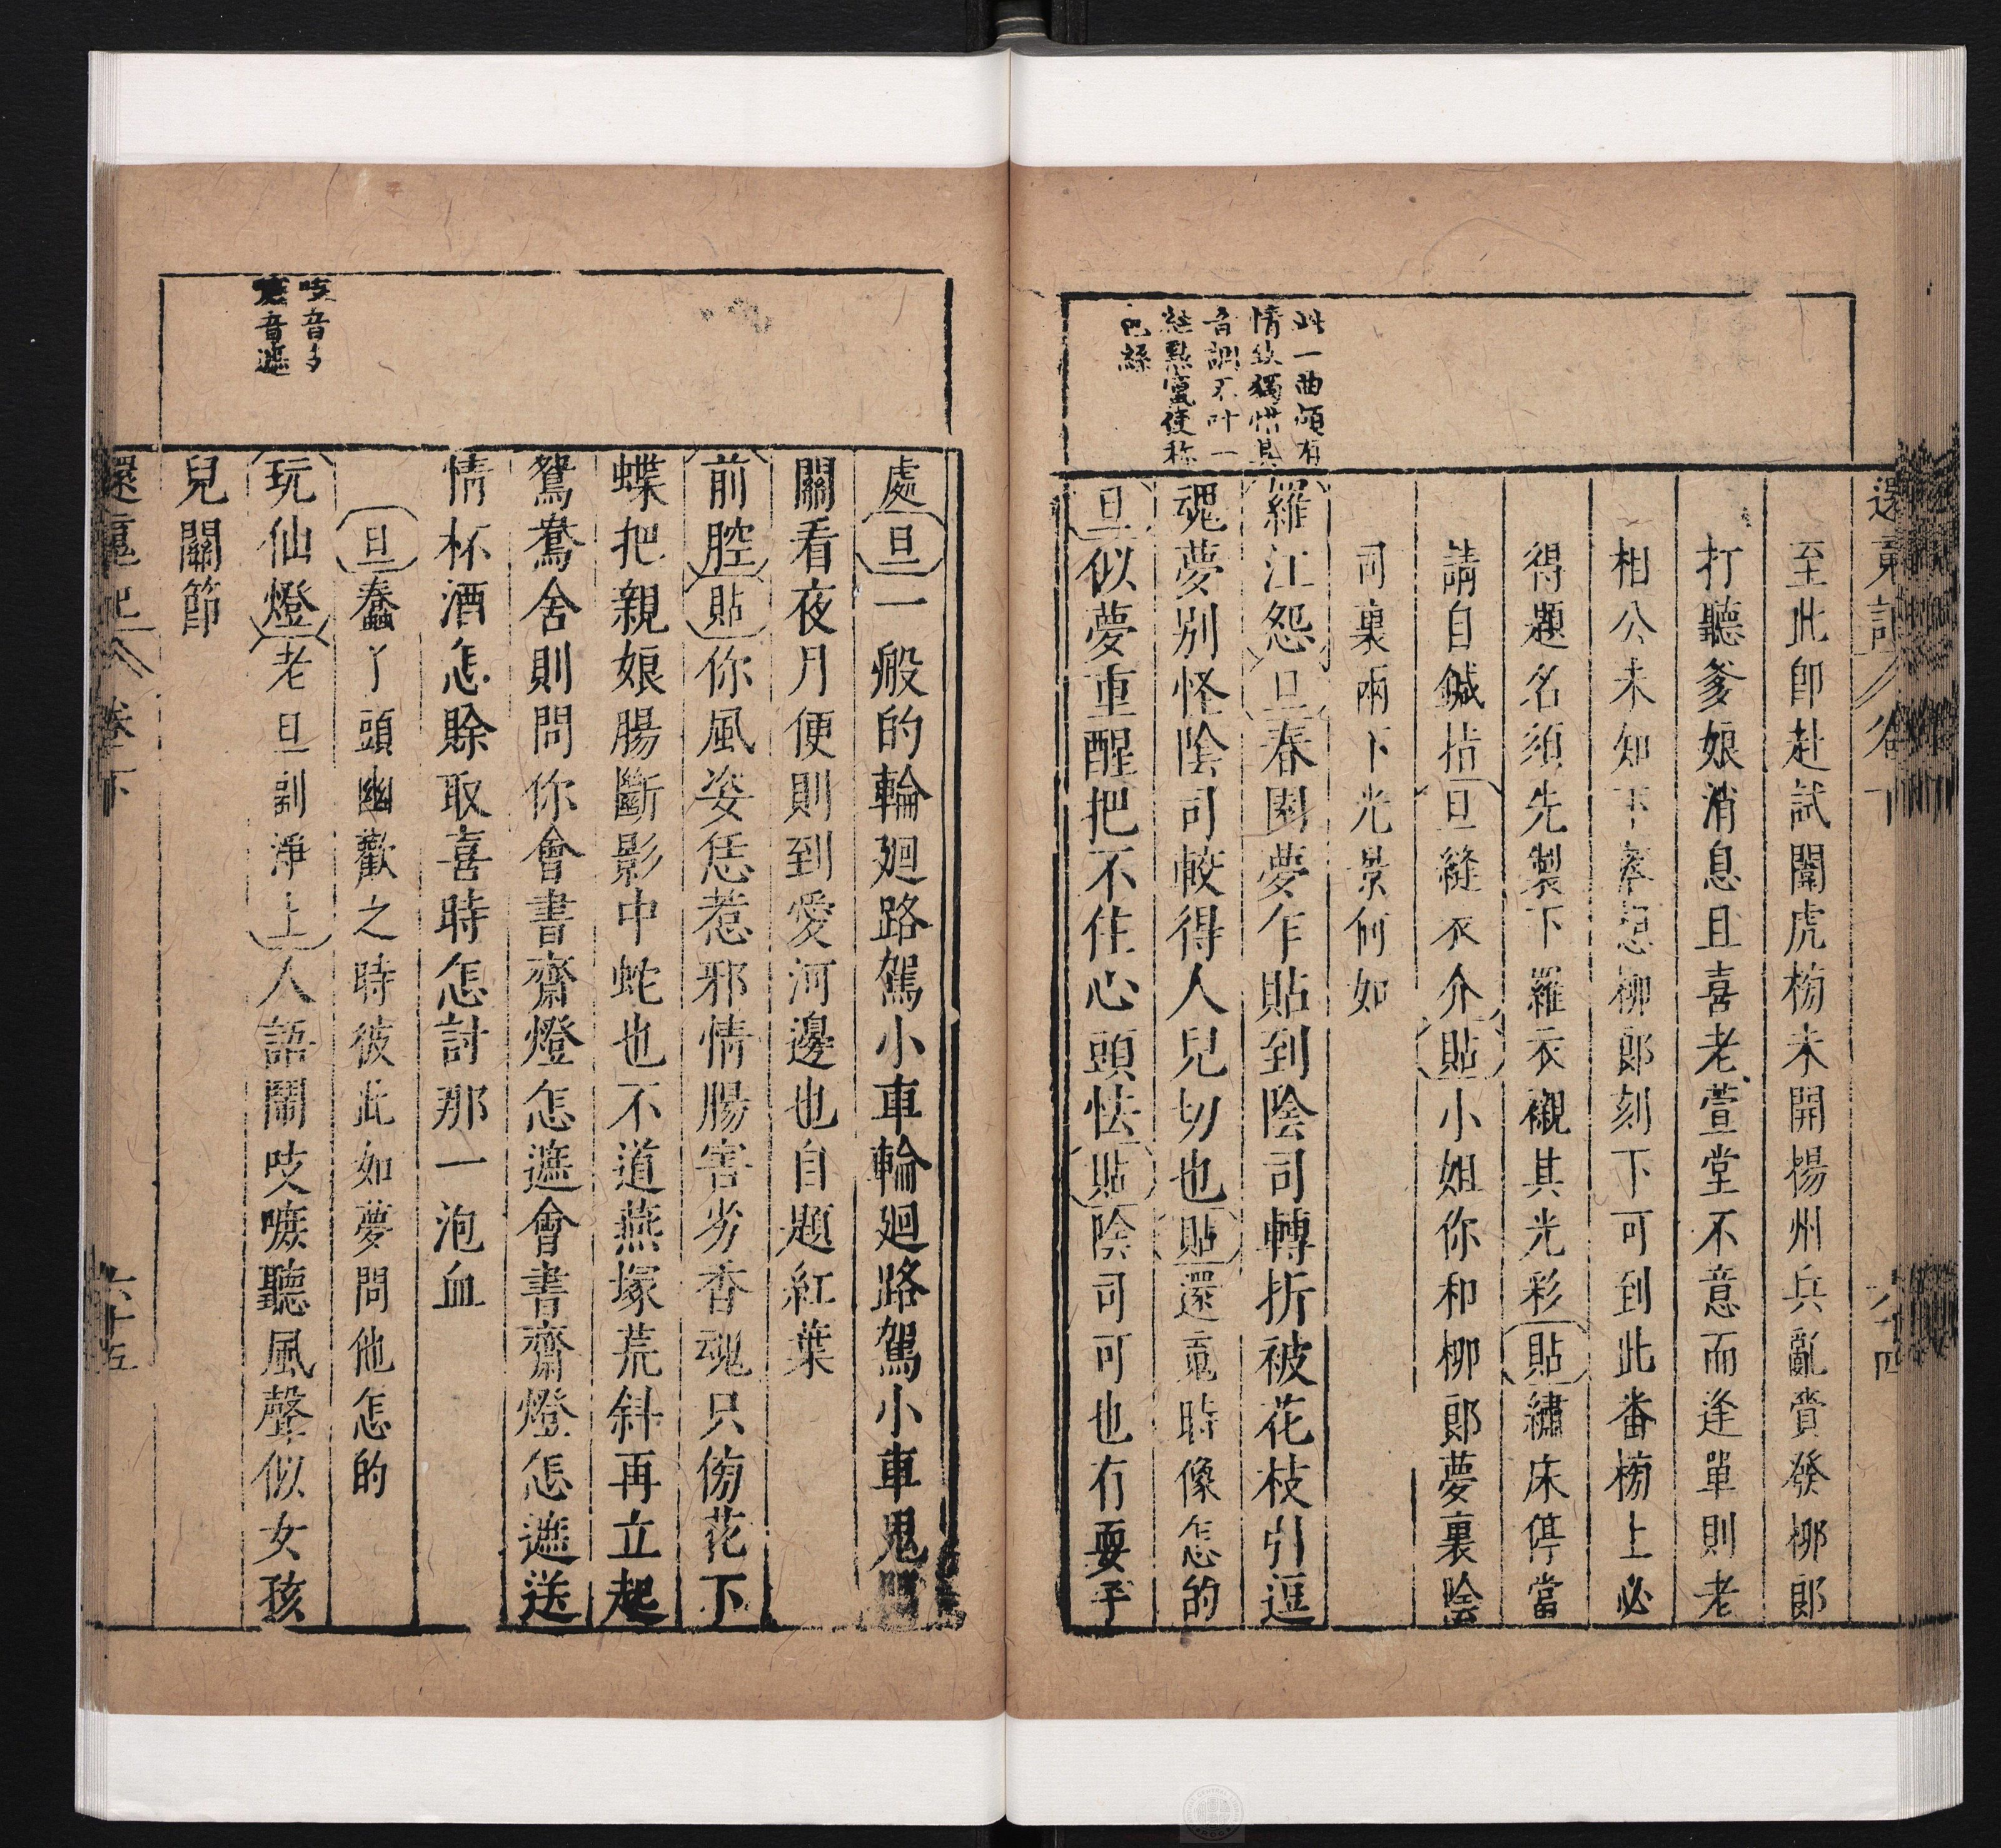 還魂記 卷下 六十四
至此卽赴試闈虎榜未開楊州兵亂賫發柳郎
打聽爹娘消息且喜老萱堂不意而逢單則老
相公未知下落想柳郎刻下可到此番榜上必
得題名須先製下羅衣襯其光彩貼繡床停當
請自鍼㨖旦縫衣介貼小姐你和柳郎夢裏陰
司裏兩下光景何如
此一曲頗有
情致獨惜其
音調不叶一
經點竄使称
完
羅江怨旦春園夢乍貼到陰司轉折被花枝引逗
魂夢別怪陰司較得人兒切也貼還䰟時像怎的
旦似夢重醒把不住心頭怯貼陰司可也有耍子
處旦一般的輪廻路駕小車輪廻路駕小車鬼門
關看夜月便則到愛河邊也自題紅葉
前腔貼你風姿恁惹邪情腸害劣香魂只傍花下
蝶把親娘腸斷影中蛇也不道燕塚荒斜再立起
鴛鴦舍則問你會書齋燈怎遮會書齋燈怎遮送
情杯酒怎賒取喜時怎討那一泡血
旦蠢丫頭幽歡之時彼此如夢問他怎的
吱音支
嗻音遮
玩仙燈老旦副淨上人語鬧吱嗻聽風聲似女孩
兒關節
還䰟記 卷下 六十五